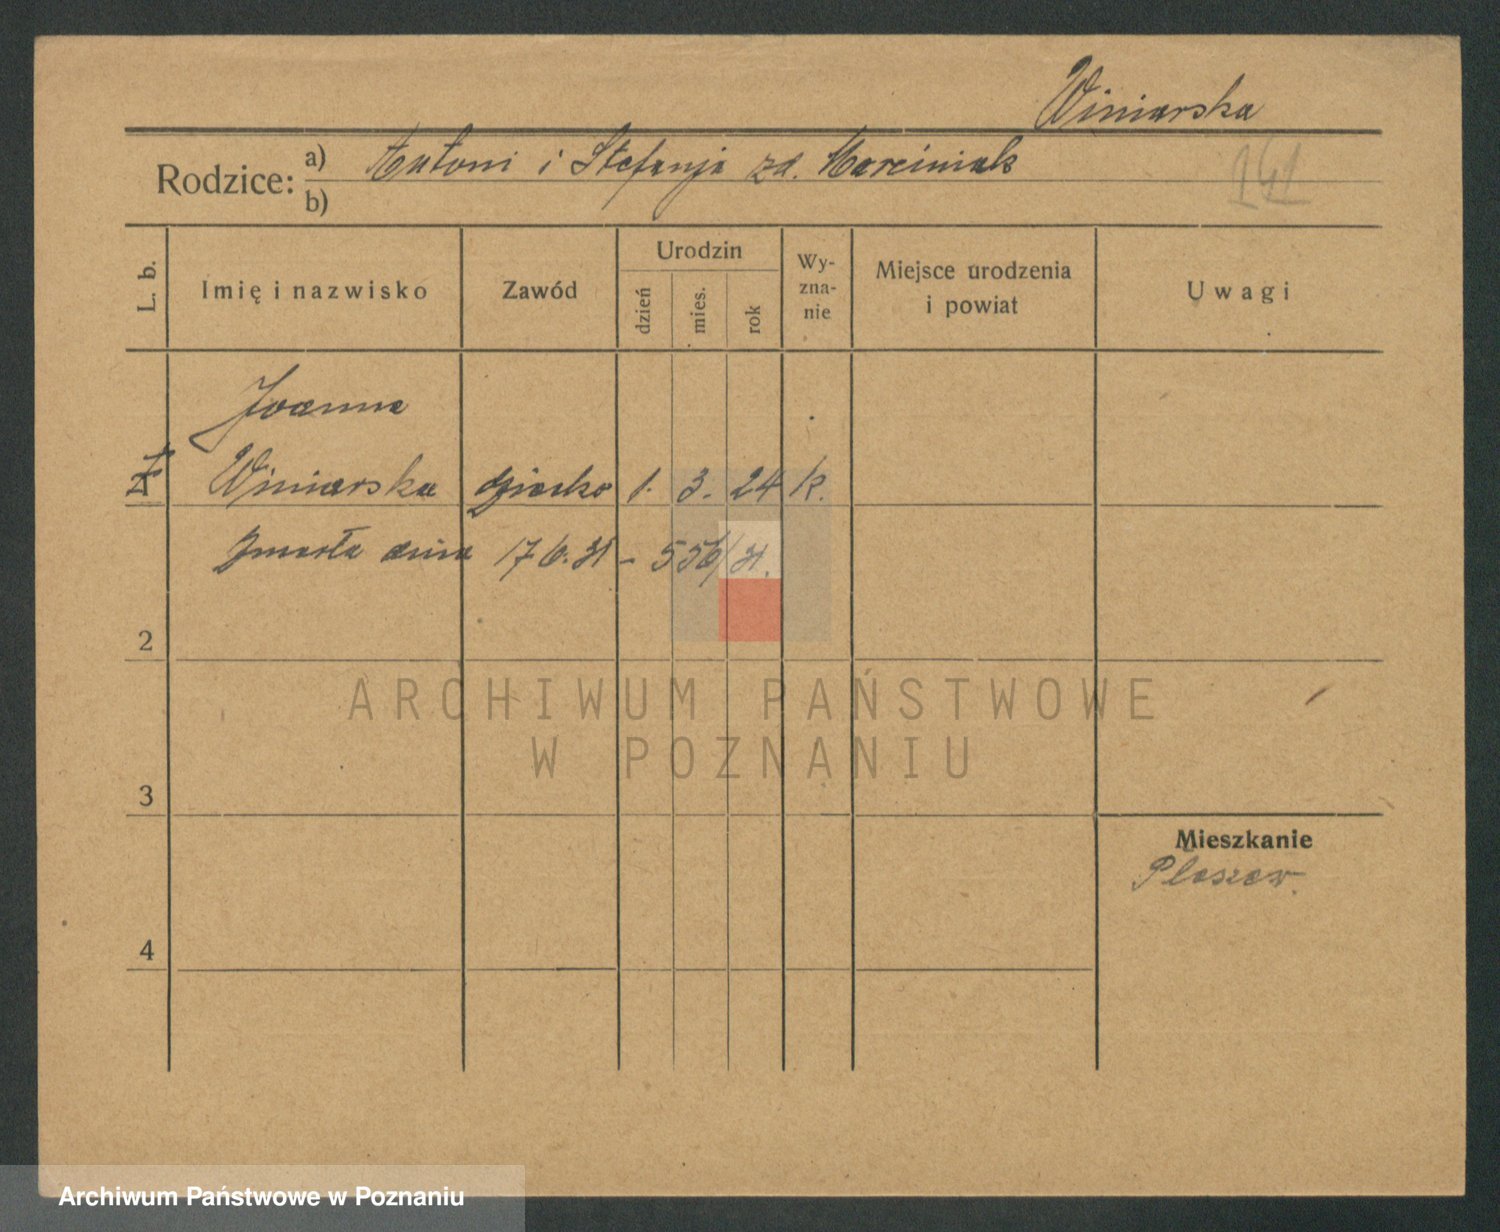 Winiarska
Rodzice: a) Antoni i Stefanja zd. Marciniak
b)
141
L. b.
Imię i nazwisko
Zawód
Urodzin
dzień
mies.
rok
Wy-
zna-
nie
Miejsce urodzenia
i powiat
Uwagi
Joanna
Winiarska dziecko 1. 3. 24 k.
Zmarła dnia 17 6. 31 - 556/31.
2
ARCHIWUM PAŃSTWOWE
W POZNANIU
3
Mieszkanie
Pleszew.
4
Archiwum Państwowe w Poznaniu